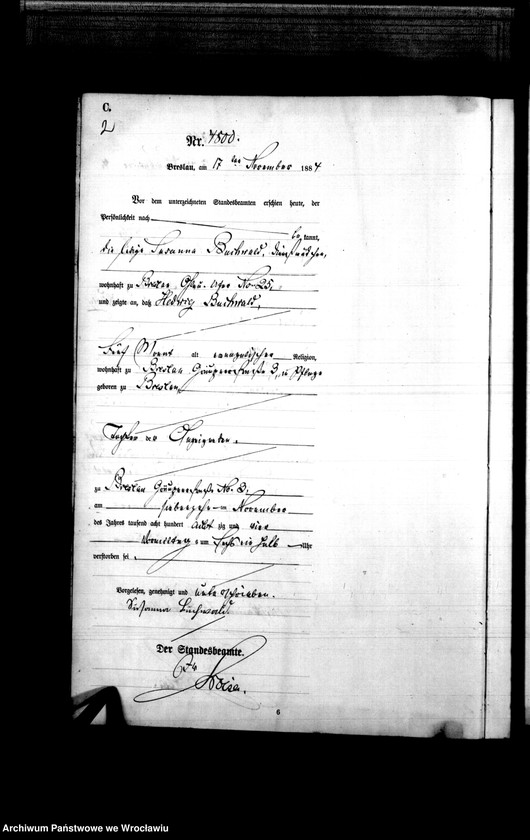 C.
2
Nr. 4500.
Breslau, am 17 ten November 1884
Vor dem unterzeichneten Standesbeamten erschien heute, der
Persönlichkeit nach
be kannt,
die ledige Susanna Buchwald, Dienstmädchen,
wohnhaft zu Breslau Ohlau-Ufer No 25,
und zeigte an, daß Hedwig Buchwald,
fünf Monat alt evangelischer Religion,
wohnhaft zu Breslau 3, in Pflege
geboren zu Breslau,
Tochter der Anzeigenden.
zu Breslau No. 3,
am siebzehnten November
des Jahres tausend acht hundert acht zig und vier
Vormittag s um sechs ein halb Uhr
verstorben sei.
Vorgelesen, genehmigt und unterschrieben.
Susanna Buchwald.
Der Standesbeamte.
6
Archiwum Państwowe we Wrocławiu